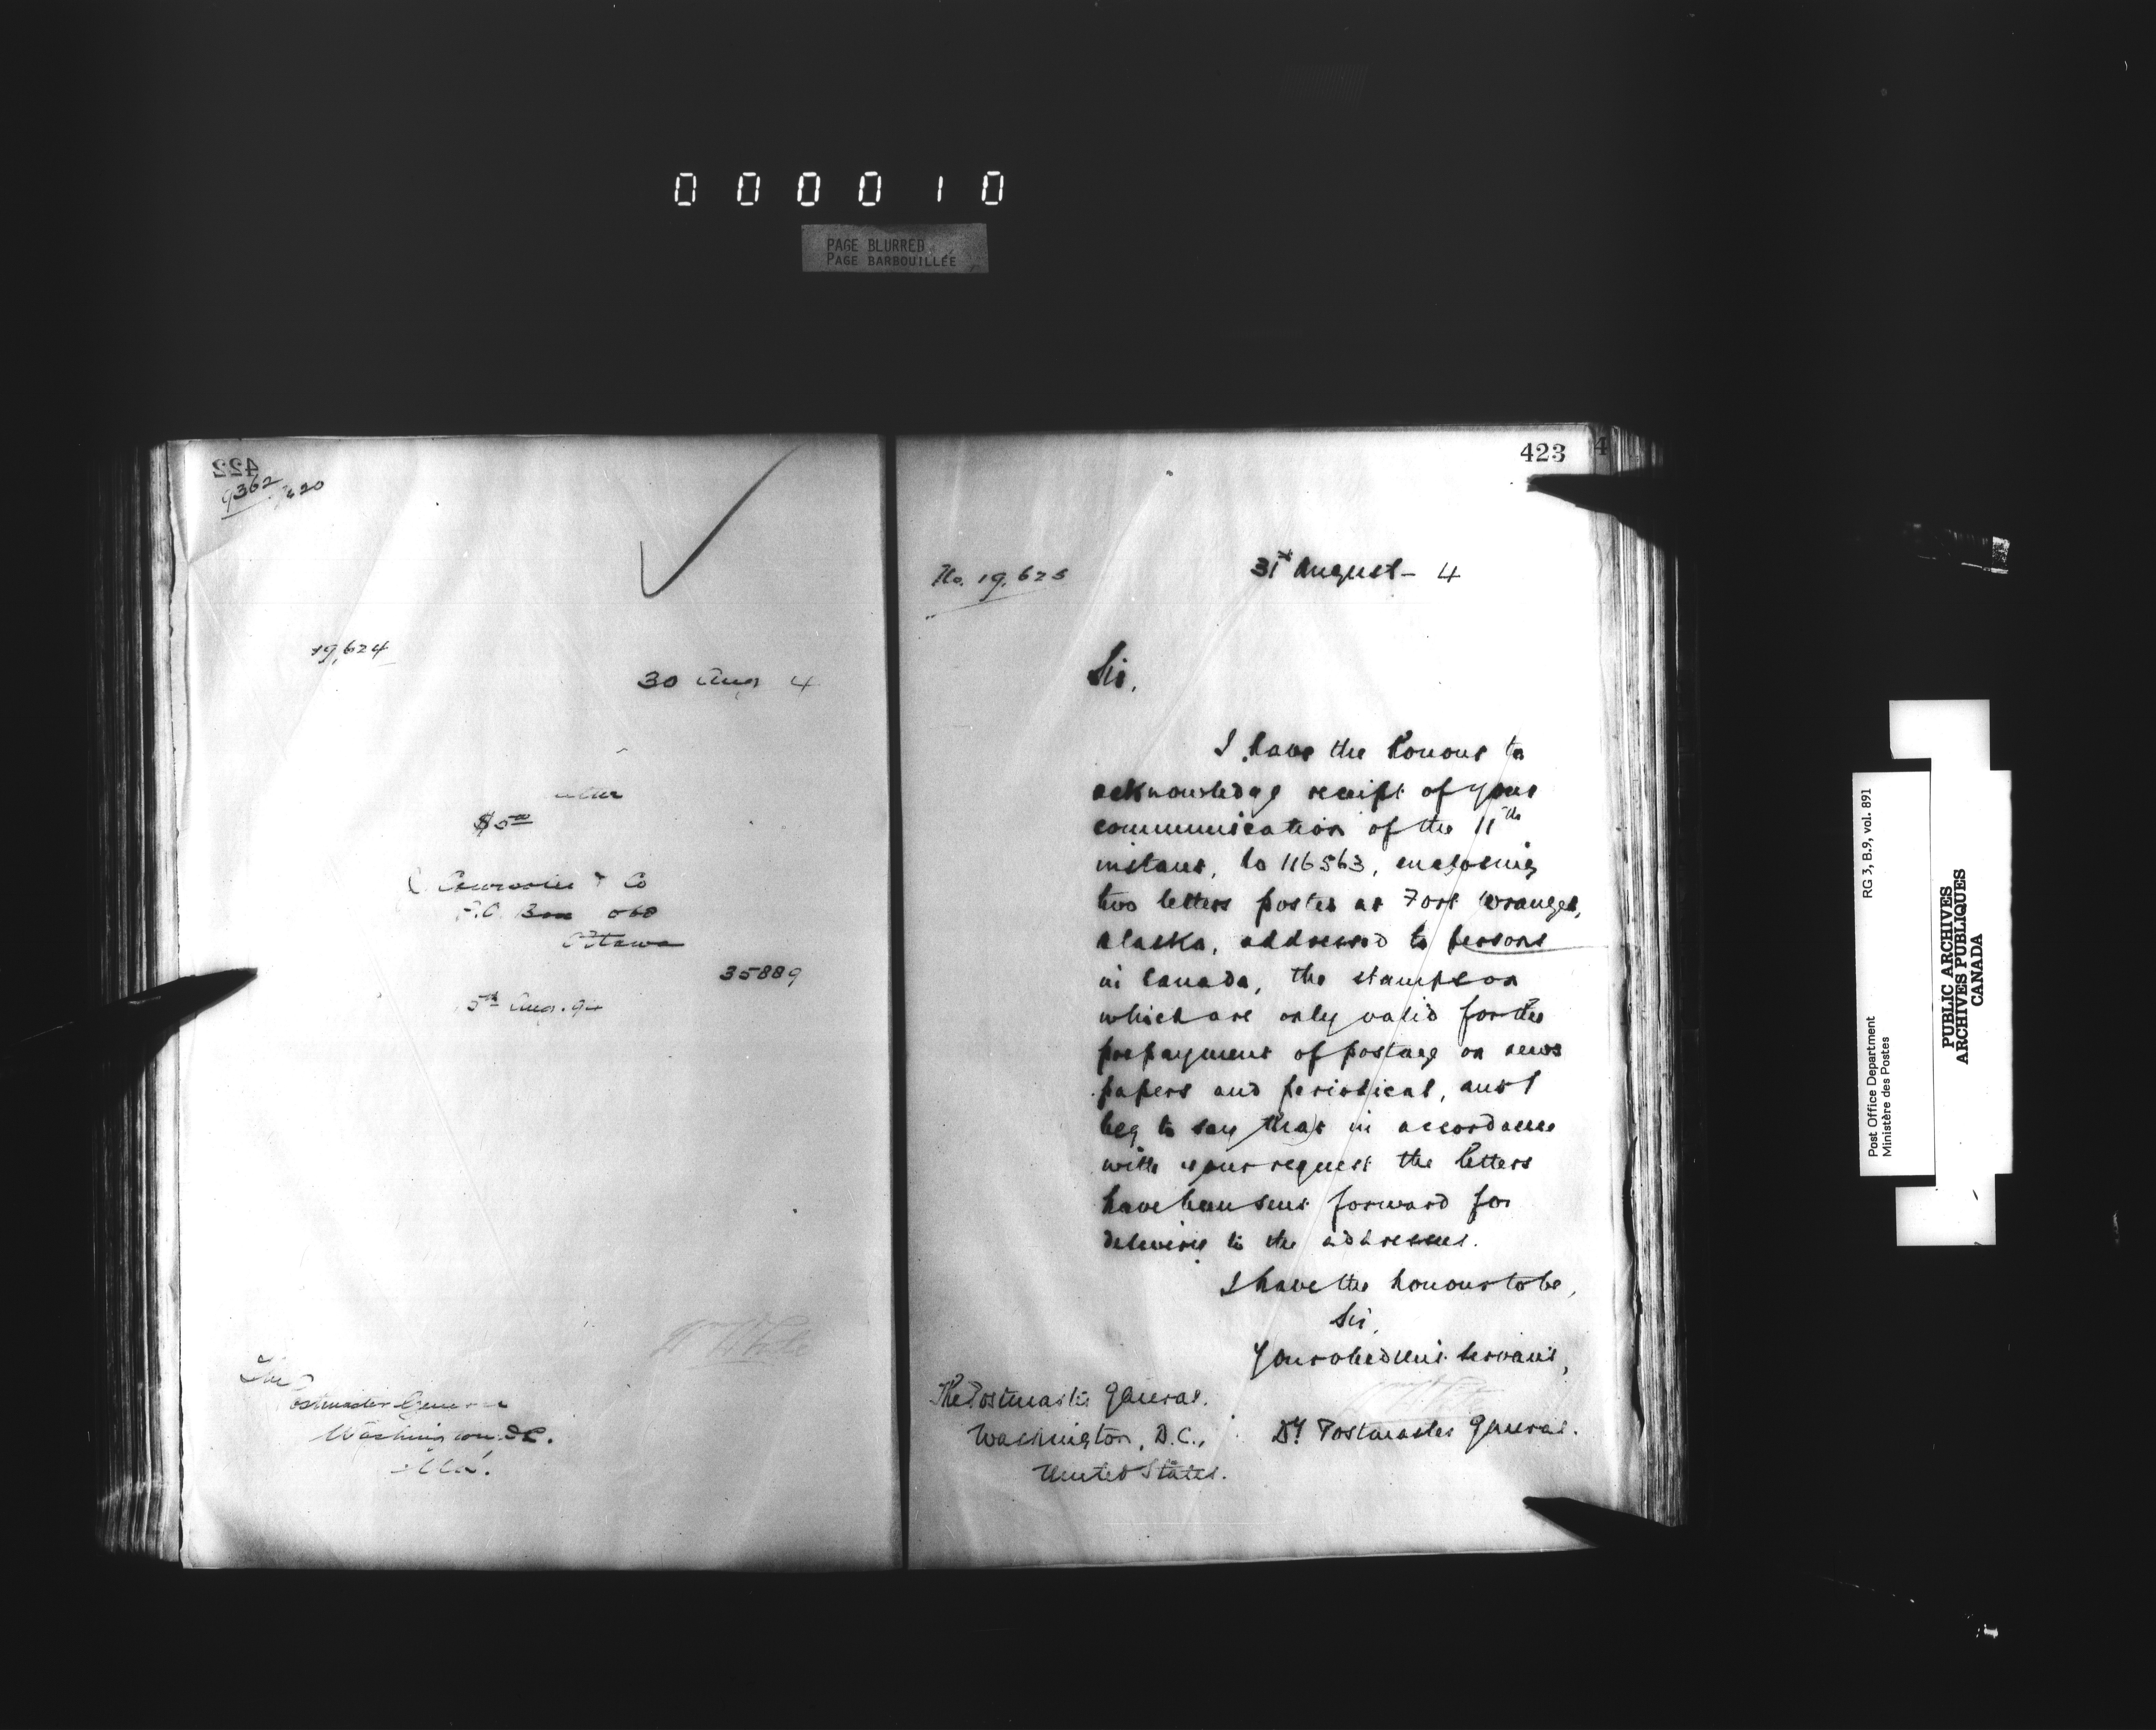 000010
PAGE BLURRED
PAGE BARBOUILLÉE
422
9362
19,624
30 Aug 4
$5.00
& Co
P.O. Box
Ottawa
35889
Aug. 94
The
Postmaster General
Washington D.C.
423
4
No. 19,625
31st August - 4
Sir,
I have the honour to
acknowledge receipt of your
communication of the 11th
instant, No 116563, enclosing
two letters posted at Fort Wrangel,
Alaska, addressed to persons
in Canada, the stamps on
which are only valid for the
prepayment of postage on news
papers and periodical, and I
beg to say that in accordance
with your request the letters
have been sent forward for
delivery to the addresses.
I have the honour to be,
Sir,
Your obedient servant,
The Postmaster General.
Washington, D.C.,
United States.
Dy Postmaster General.
Post Office Department
Ministère des Postes
RG 3, B.9, vol. 891
PUBLIC ARCHIVES
ARCHIVES PUBLIQUES
CANADA